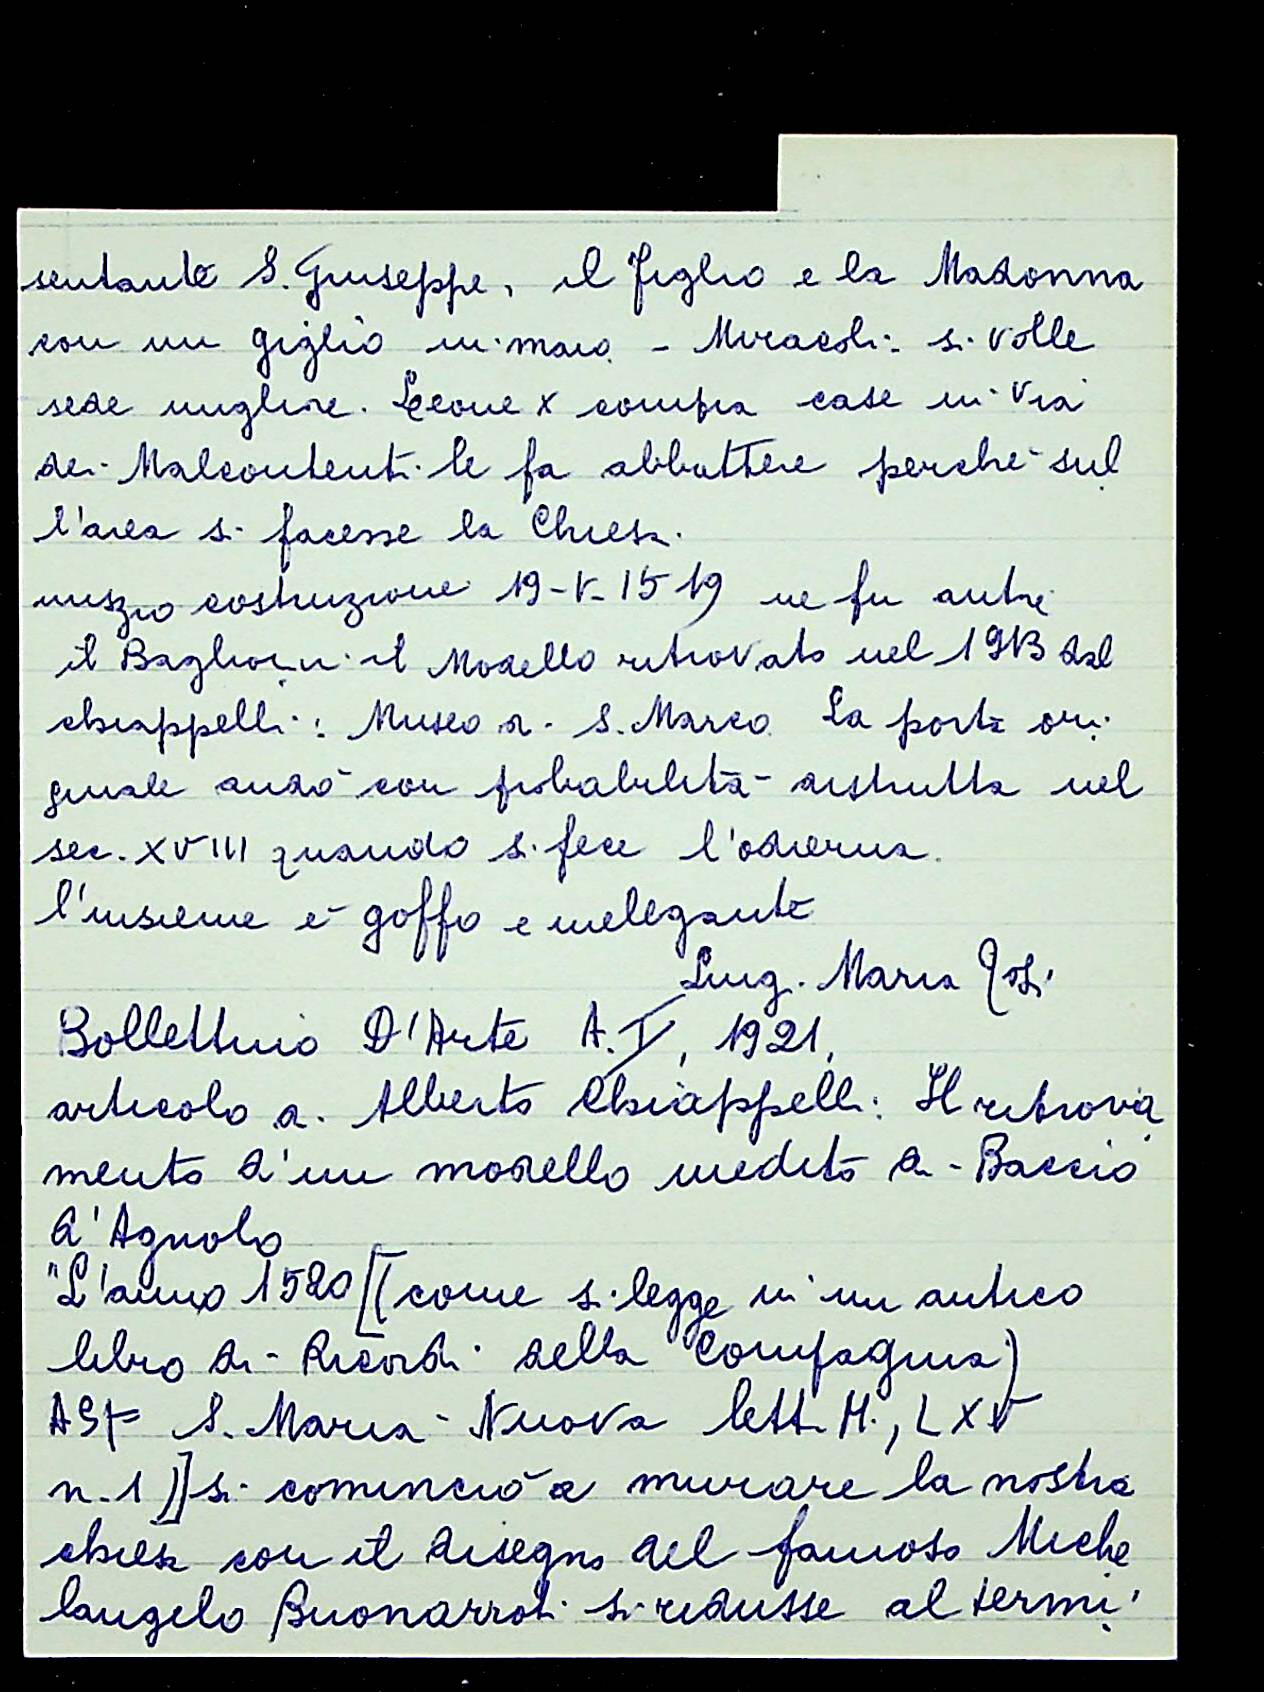 sentante S. Giuseppe, il figlio e la Madonna
con un giglio in mano - Miracoli: si volle
sede migliore. Leone X compra case in Via
dei Malcontenti le fa abbattere perchè sul
l'area si facesse la Chiesa.
inizio costruzione 19-V-1519 ne fu
il Baglioni il Modello ritrovato nel 1913 dal
chiappelli: Museo di S. Marco. La porta ori
ginale andò con probabilità distrutta nel
sec. XVIII quando si fece l'odierna.
l'insieme è goffo e inelegante
Luig. Maria
Bollettino D'Arte A. I, 1921,
articolo di Alberto Chiappelli: Il ritrova
mento d'un modello inedito di Baccio
d'Agnolo
"L'anno 1520 [(come si legge in un antico
libro di Ricordi della Compagnia)
ASF S. Maria Nuova lett. M., LXV
n. 1)] si cominciò a murare la nostra
chiesa con il disegno del famoso Miche
langelo Buonarroti si ridusse al termi